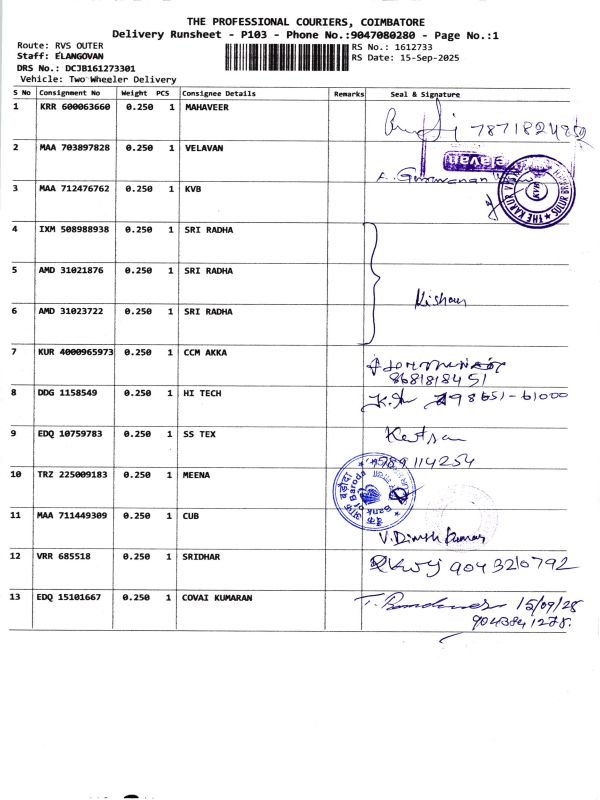 THE PROFESSIONAL COURIERS, COIMBATORE
Delivery Runsheet - P103 - Phone No.:9047080280 - Page No.:1
Route: RVS OUTER RS No.: 1612733
Staff: ELANGOVAN RS Date: 15-Sep-2025
DRS No.: DCJB161273301
Vehicle: Two Wheeler Delivery
S No Consignment No Weight PCS Consignee Details Remarks Seal & Signature
1 KRR 600063660 0.250 1 MAHAVEER
2 MAA 703897828 0.250 1 VELAVAN
3 MAA 712476762 0.250 1 KVB
4 IXM 508988938 0.250 1 SRI RADHA
5 AMD 31021876 0.250 1 SRI RADHA
Kishan
6 AMD 31023722 0.250 1 SRI RADHA
7 KUR 4000965973 0.250 1 CCM AKKA
8681818451
8 DDG 1158549 0.250 1 HI TECH 98651-61000
9 EDQ 10759783 0.250 1 SS TEX
9789114254
10 TRZ 225009183 0.250 1 MEENA
Bank of Baroda
11 MAA 711449309 0.250 1 CUB
V. Dinesh Kumar
12 VRR 685518 0.250 1 SRIDHAR 9043210792
13 EDQ 15101667 0.250 1 COVAI KUMARAN 15/09/25
9043841278.